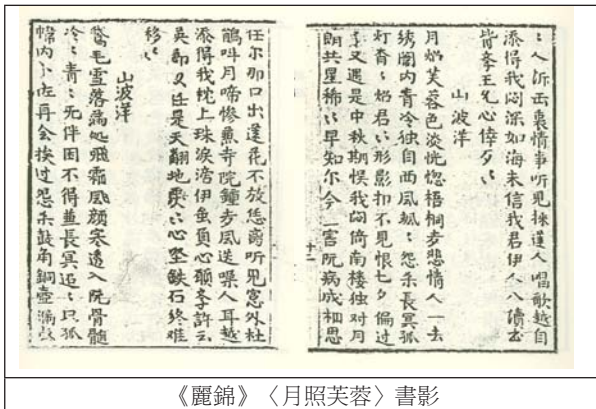 〻人訴出衷情事听見採蓮人唱歌越自
添得我悶深如海未信我君伊人八債去
皆辜王允心倖夕〻
山波洋
月炤芙蓉色淡恍惚梧桐步悲情人一去
綉閣内青冷独自西風飄〻怨禾長冥孤
灯青〻炤君〻形影扣不見恨七夕偏过
〻又遇是中秋期悮我悶倚南楼独对月
朗共星稀〻早知尔今一言阮病成相思
十二
任尔那口出蓮花不放恁 听見窓外杜
鵑叫月啼惨煞寺院鐘步風送噪人耳越
添得我枕上珠淚滴伊虽負心願李許云
吳郎又任是天翻地震〻心堅鉄石終难
移〻
山波洋
鵞毛雪落满処飛霜風顔寒透入阮骨髓
冷〻青〻无伴困不得並長冥迢〻只孤
幃内小 再会挨过怨禾鼓角銅壺漏
《麗錦》〈月照芙蓉〉書影